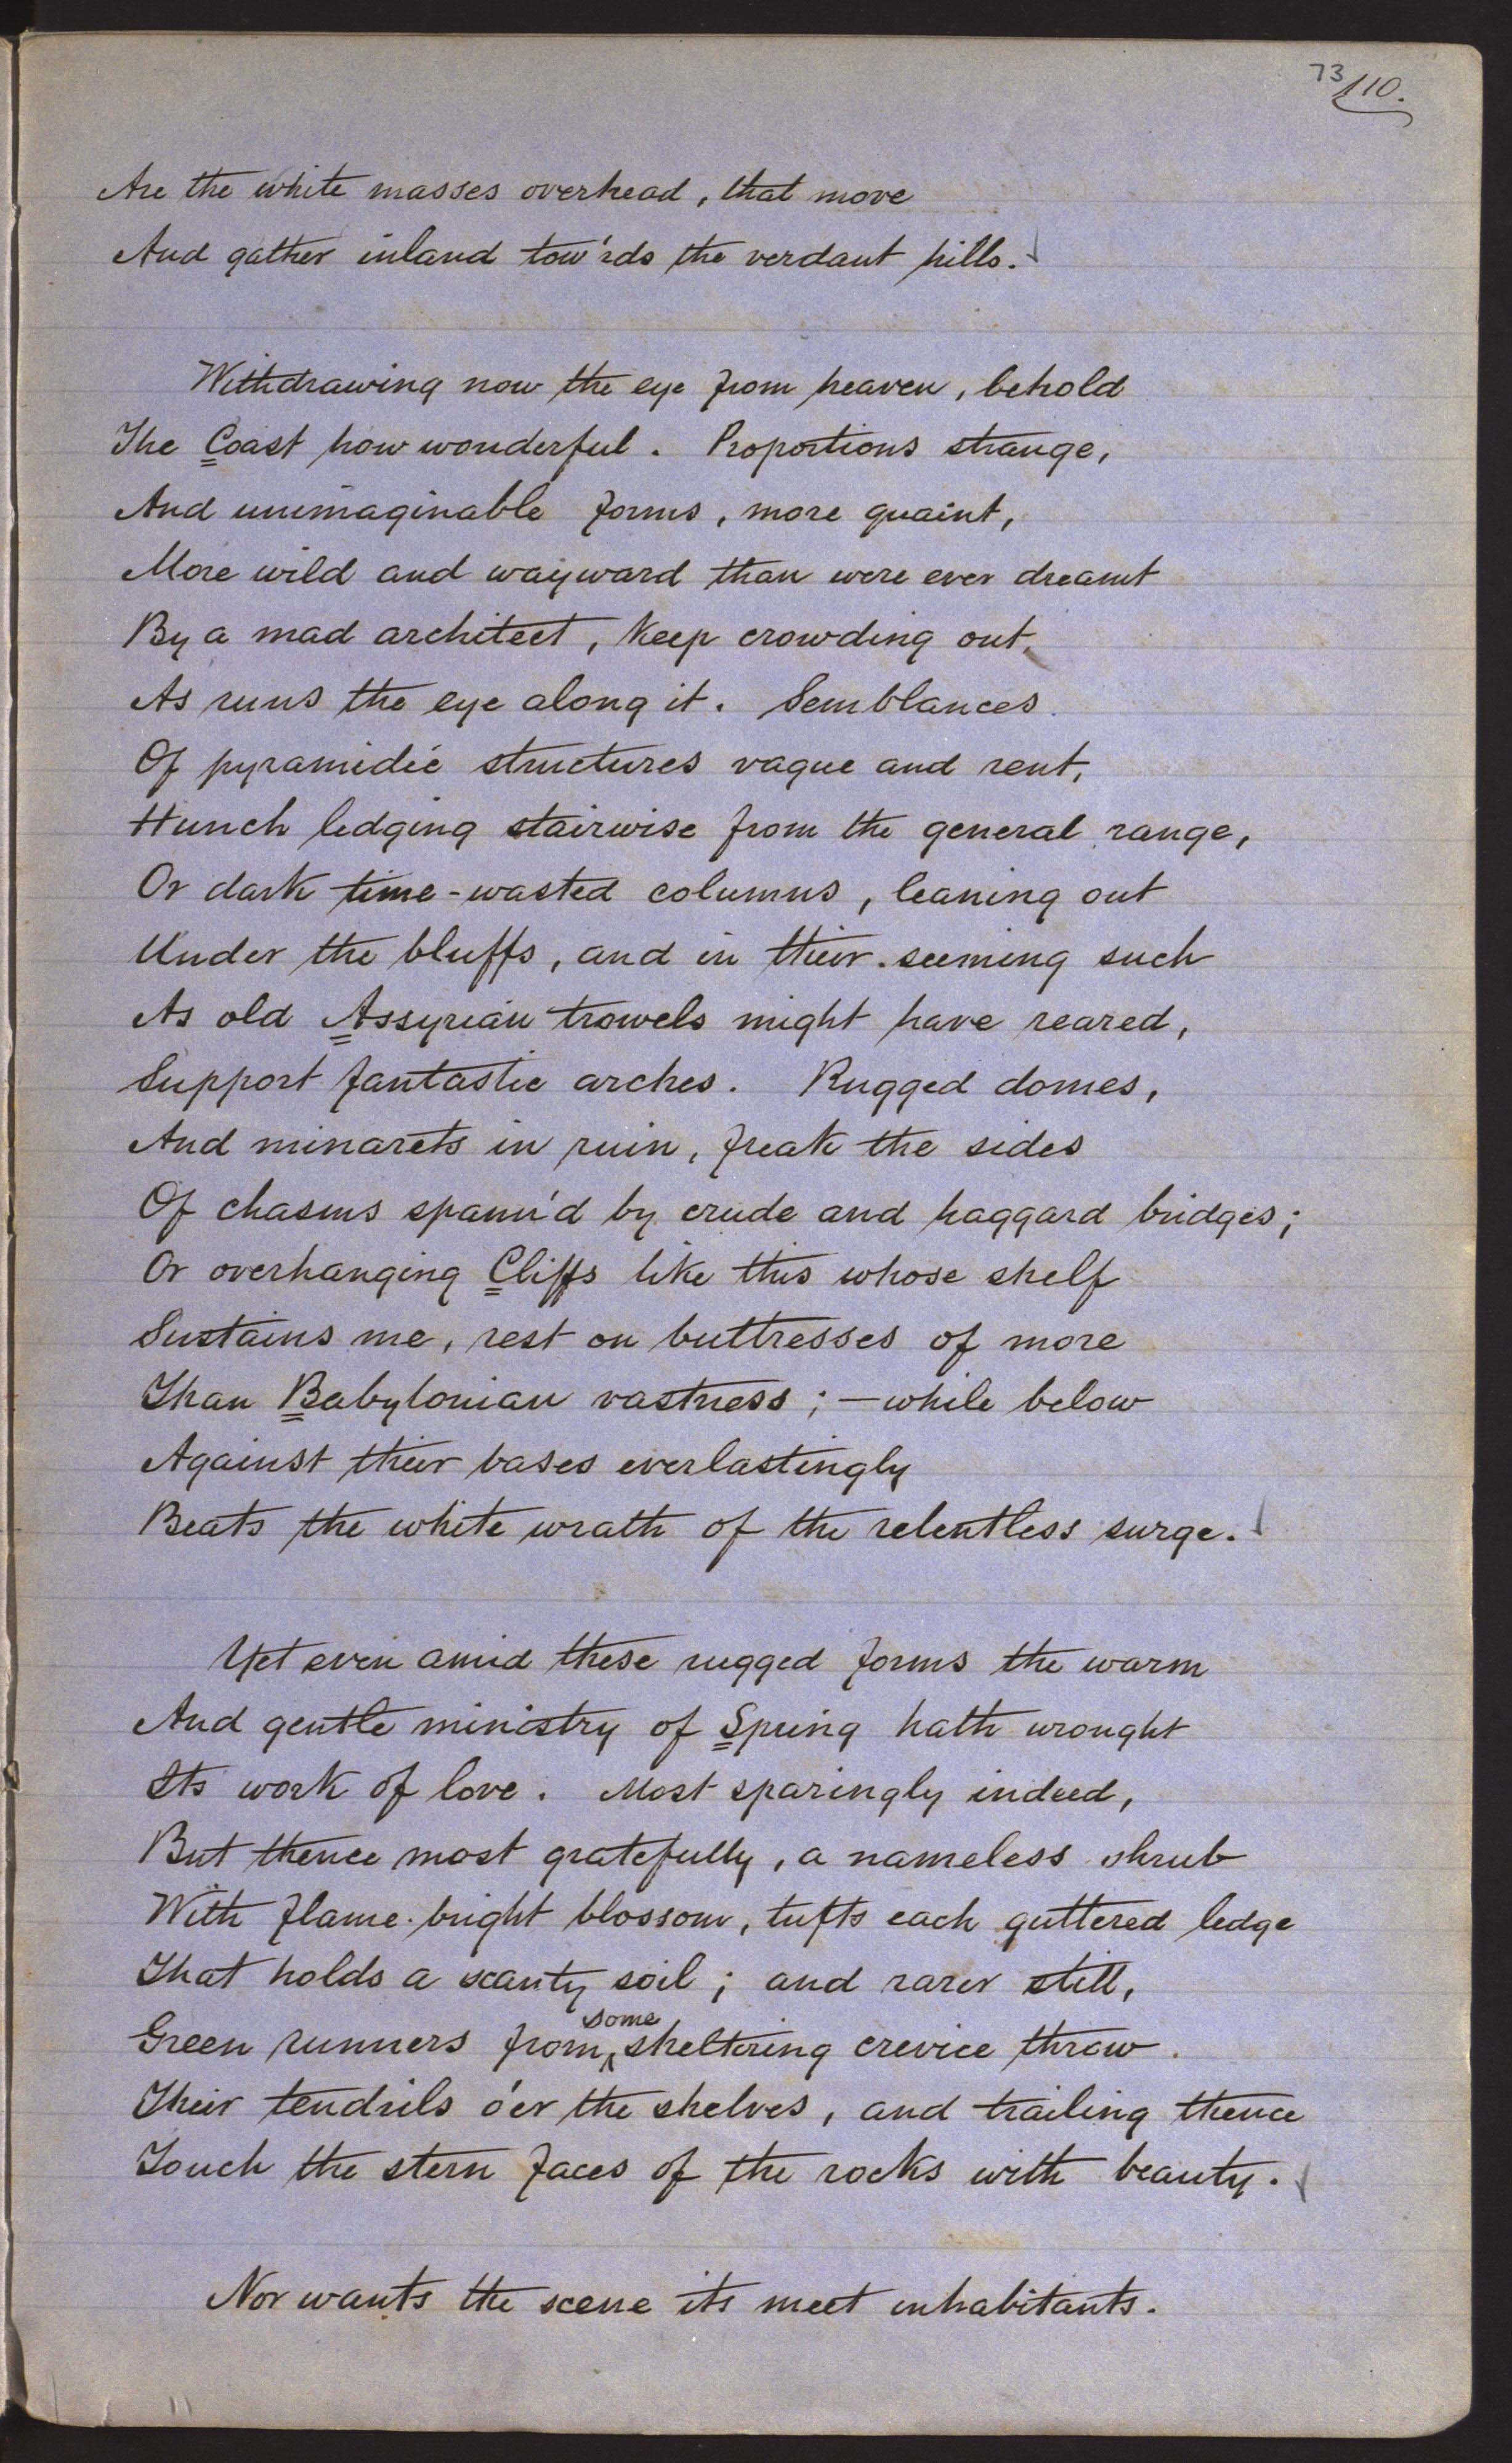 73
110.
Are the white masses overhead, that move
And gather inland tow'rds the verdant hills.
Withdrawing now the eye from heaven, behold
The Coast how wonderful. Proportions strange,
And unimaginable forms, more quaint,
More wild and wayward than were ever dreamt
By a mad architect, keep crowding out,
As runs the eye along it. Semblances
Of pyramidic structures vague and rent,
Hunch ledging stairwise from the general range,
Or dark time-wasted columns, leaning out
Under the bluffs, and in their seeming such
As old Assyrian trowels might have reared,
Support fantastic arches. Rugged domes,
And minarets in ruin, freak the sides
Of chasms spann'd by crude and haggard bridges;
Or overhanging Cliffs like this whose shelf
Sustains me, rest on buttresses of more
Than Babylonian vastness; — while below
Against their bases everlastingly
Beats the white wrath of the relentless surge.
Yet even amid these rugged forms the warm
And gentle ministry of Spring hath wrought
Its work of love. Most sparingly indeed,
But thence most gratefully, a nameless shrub
With flame-bright blossom, tufts each guttered ledge
That holds a scanty soil; and rarer still,
Green runners from some sheltering crevice throw
Their tendrils o'er the shelves, and trailing thence
Touch the stern faces of the rocks with beauty.
Nor wants the scene its meet inhabitants.